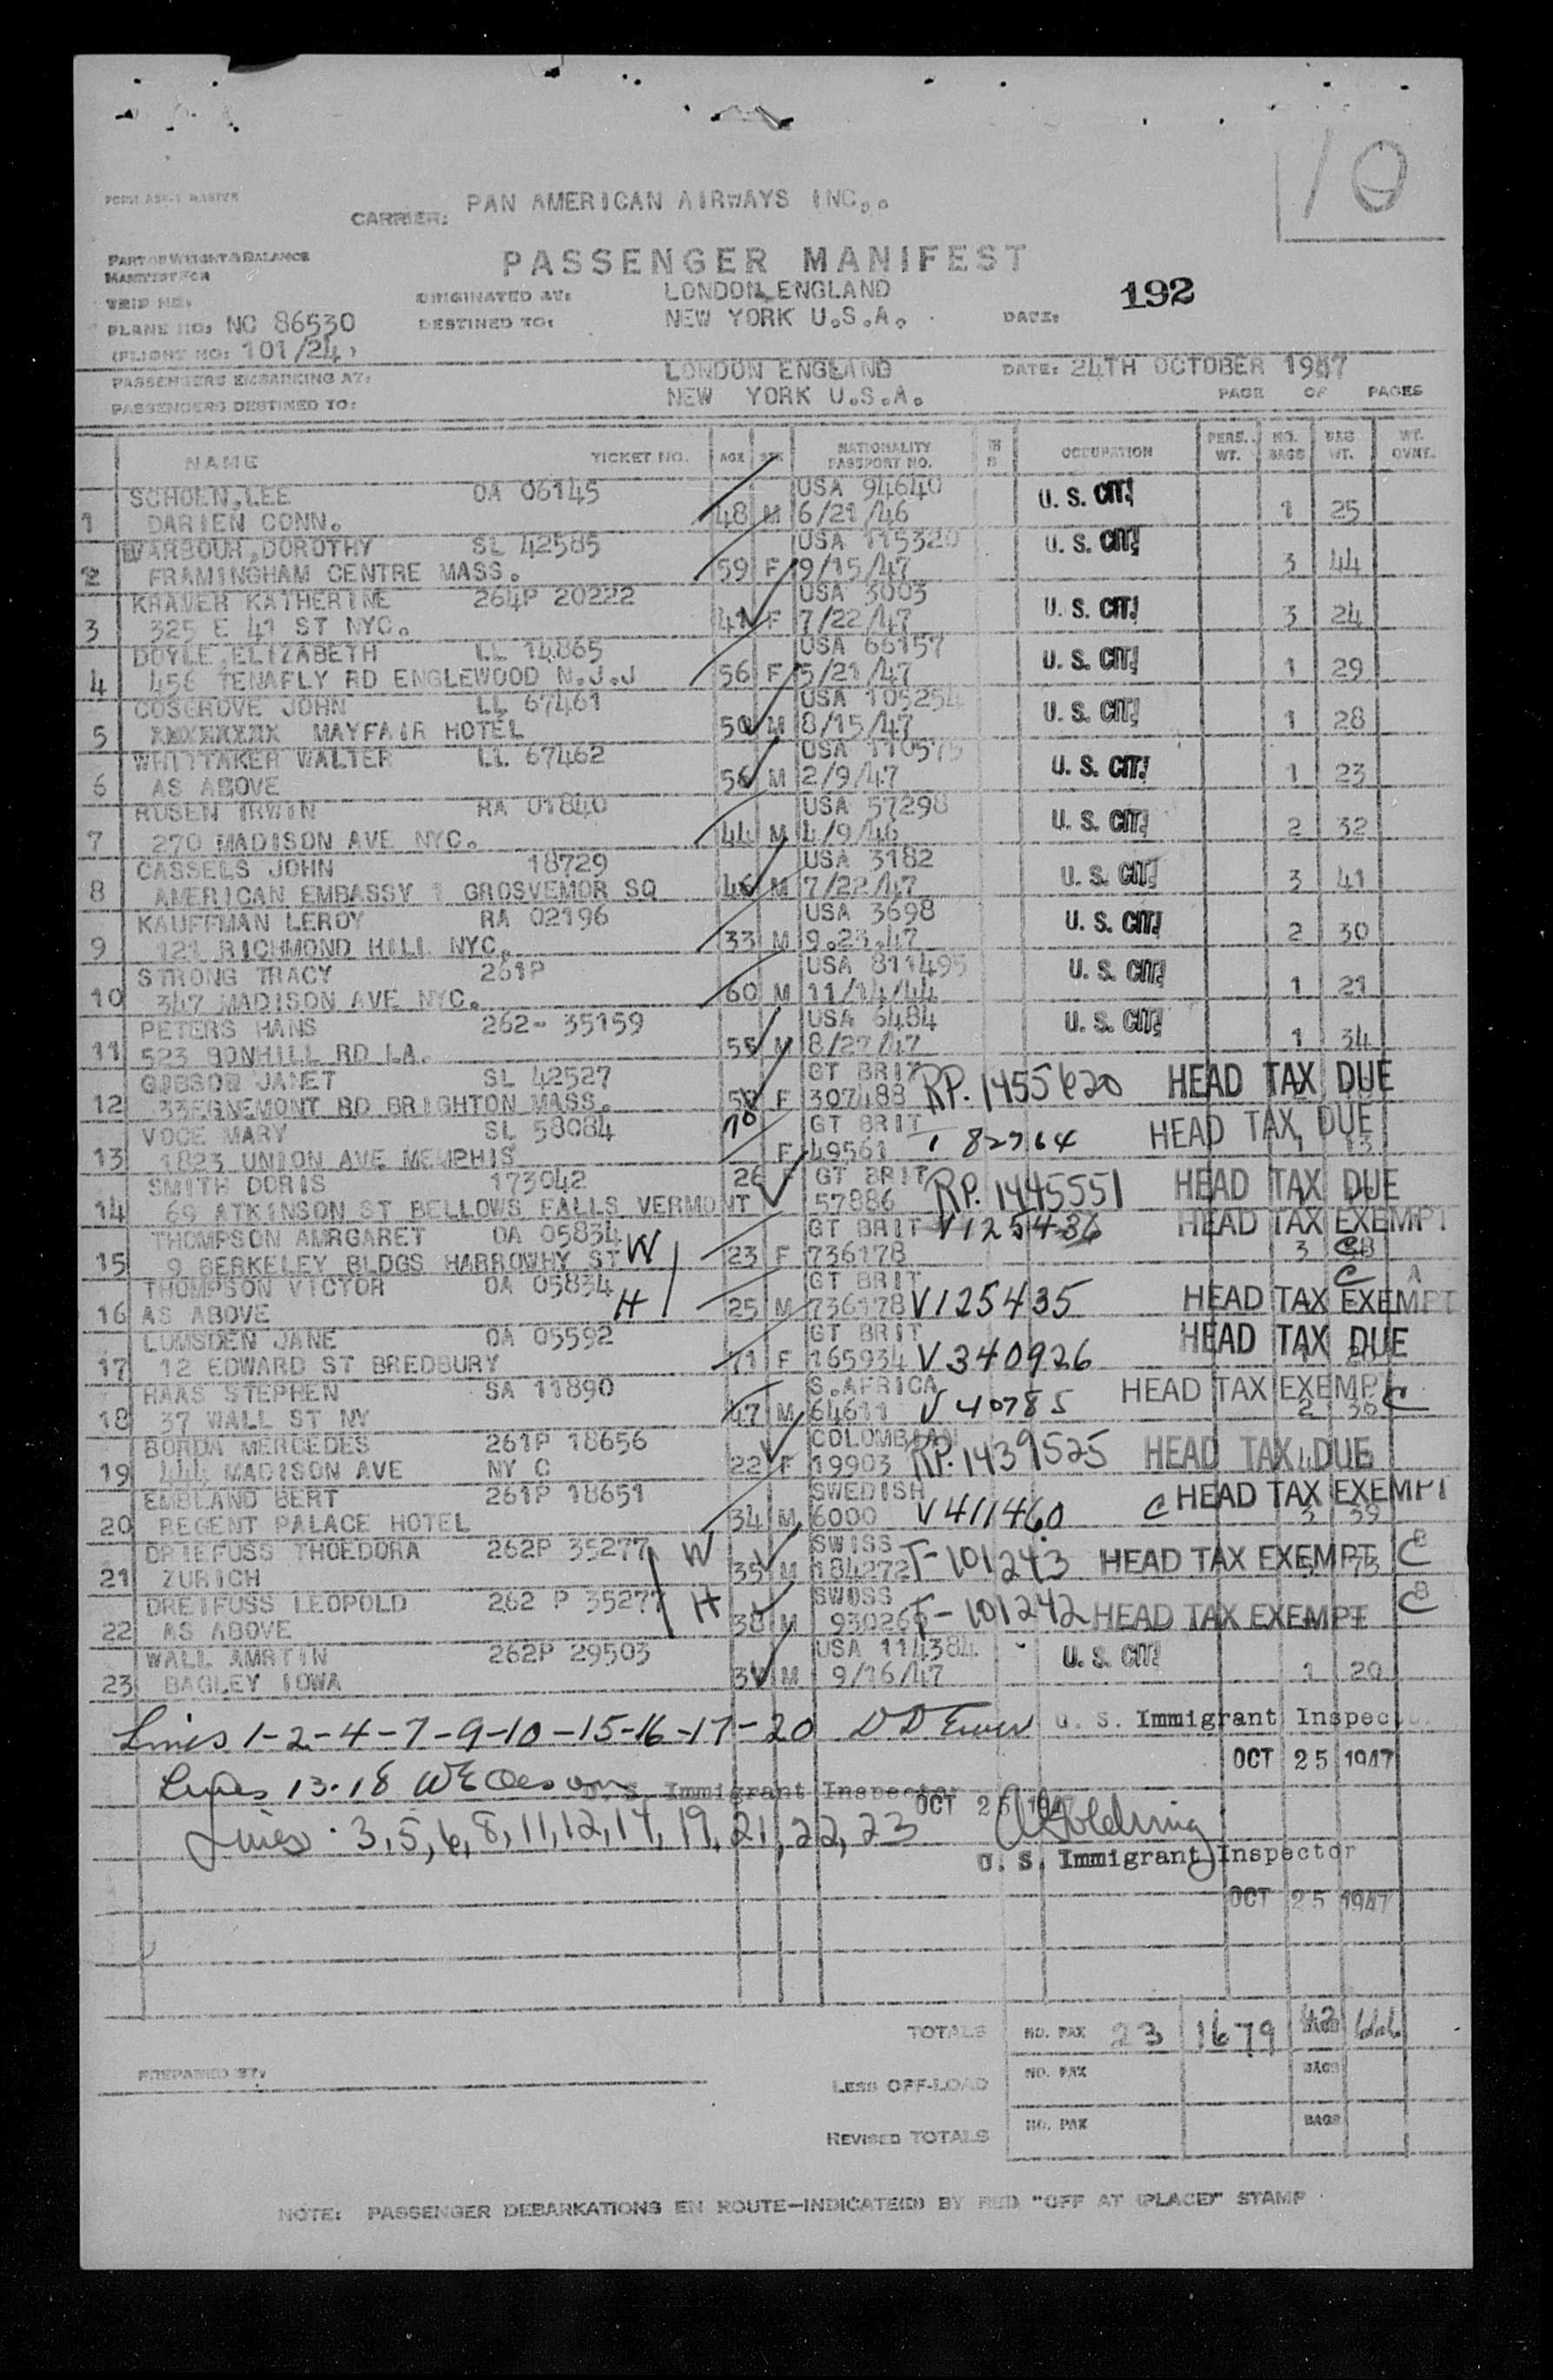 10
FORM ASR-1 MASTER
CARRIER: PAN AMERICAN AIRWAYS INC..
PART OF WEIGHT & BALANCE
MANIFEST FOR
PASSENGER MANIFEST
TRIP NO.
ORIGINATED AT: LONDON ENGLAND 192
PLANE NO: NC 86530 DESTINED TO: NEW YORK U.S.A. DATE:
(FLIGHT NO: 101/24)
PASSENGERS EMBARKING AT: LONDON ENGLAND DATE: 24TH OCTOBER 1947
PASSENGERS DESTINED TO: NEW YORK U.S.A. PAGE OF PAGES
NAME TICKET NO. AGE SEX NATIONALITY PASSPORT NO. OCCUPATION PERS. WT. NO. BAGS BAG WT. WT. OVNT.
SCHOEN,LEE OA 06145 USA 94640 U. S. CIT.
1 DARIEN CONN. 48 M 6/21/46 1 25
WARBOUR,DOROTHY SL 42585 USA 115320 U. S. CIT.
2 FRAMINGHAM CENTRE MASS. 59 F 9/15/47 3 44
KRAMER KATHERINE 264P 20222 USA 3003 U. S. CIT.
3 325 E 41 ST NYC. 41 F 7/22/47 3 24
DOYLE,ELIZABETH LL 14865 USA 66157 U. S. CIT.
4 456 TENAFLY RD ENGLEWOOD N.J.J 56 F 5/21/47 1 29
COSGROVE JOHN LL 67461 USA 105254 U. S. CIT.
5 MAYFAIR HOTEL 50 M 8/15/47 1 28
WHITTAKER WALTER LL 67462 USA 110575 U. S. CIT.
6 AS ABOVE 56 M 2/9/47 1 23
ROSEN IRWIN RA 01840 USA 57298 U. S. CIT.
7 270 MADISON AVE NYC. 44 M 4/9/46 2 32
CASSELS JOHN 18729 USA 3182 U. S. CIT.
8 AMERICAN EMBASSY 1 GROSVEMOR SQ 46 M 7/22/47 3 41
KAUFFMAN LEROY RA 02196 USA 3698 U. S. CIT.
9 121 RICHMOND HILL NYC. 33 M 9.23.47 2 30
STRONG TRACY 261P USA 811495 U. S. CIT.
10 347 MADISON AVE NYC. 60 M 11/14/44 1 21
PETERS HANS 262- 35159 USA 6484 U. S. CIT.
11 523 BONHILL RD LA. 55 M 8/27/47 1 34
GIBSON JANET SL 42527 GT BRIT RP. 1455620 HEAD TAX DUE
12 33EGNEMONT RD BRIGHTON MASS. F 307488
VOCE MARY SL 58084 70 GT BRIT T 82764 HEAD TAX DUE
13 1823 UNION AVE MEMPHIS F 49561 1 13
SMITH DORIS 173042 26 F GT BRIT RP. 1445551 HEAD TAX DUE
14 69 ATKINSON ST BELLOWS FALLS VERMONT 57886
THOMPSON AMRGARET OA 05834 W GT BRIT V125436 HEAD TAX EXEMPT
15 9 BERKELEY BLDGS HARROWHY ST 23 F 736178 3 C
THOMPSON VICTOR OA 05834 H GT BRIT C A
16 AS ABOVE 25 M 736178 V125435 HEAD TAX EXEMPT
LUMSDEN JANE OA 05592 GT BRIT HEAD TAX DUE
17 12 EDWARD ST BREDBURY 71 F 165934 V340926
HAAS STEPHEN SA 11890 S.AFRICA HEAD TAX EXEMPT C
18 37 WALL ST NY 47 M 64611 V 40785 2
BORDA MERCEDES 261P 18656 COLOMBIAN
19 444 MADISON AVE NY C 22 F 19903 RP. 1439525 HEAD TAX DUE
EMBLAND BERT 261P 18651 SWEDISH C HEAD TAX EXEMPT
20 REGENT PALACE HOTEL 34 M 6000 V411460 3 39
DRIEFUSS THOEDORA 262P 35277 W SWISS
21 ZURICH 35 M 184272 T-101243 HEAD TAX EXEMPT C B
DREIFUSS LEOPOLD 262 P 35277 H SWOSS
22 AS ABOVE 38 M 930260 T-101242 HEAD TAX EXEMPT C B
WALL AMRTIN 262P 29503 USA 114384 U. S. CIT.
23 BAGLEY IOWA M 9/16/47 1 20
Lines 1-2-4-7-9-10-15-16-17-20 U. S. Immigrant Inspector
OCT 25 1947
Lines 13-18 U. S. Immigrant Inspector
OCT 25 1947
Lines 3,5,6,8,11,12,14,19,21,22,23 Goldring
U. S. Immigrant Inspector
OCT 25 1947
TOTALS NO. PAX 23 1679
PREPARED BY: LESS OFF-LOAD NO. PAX BAGS
REVISED TOTALS NO. PAX BAGS
NOTE: PASSENGER DEBARKATIONS EN ROUTE—INDICATE(D) BY RED "OFF AT (PLACE)" STAMP